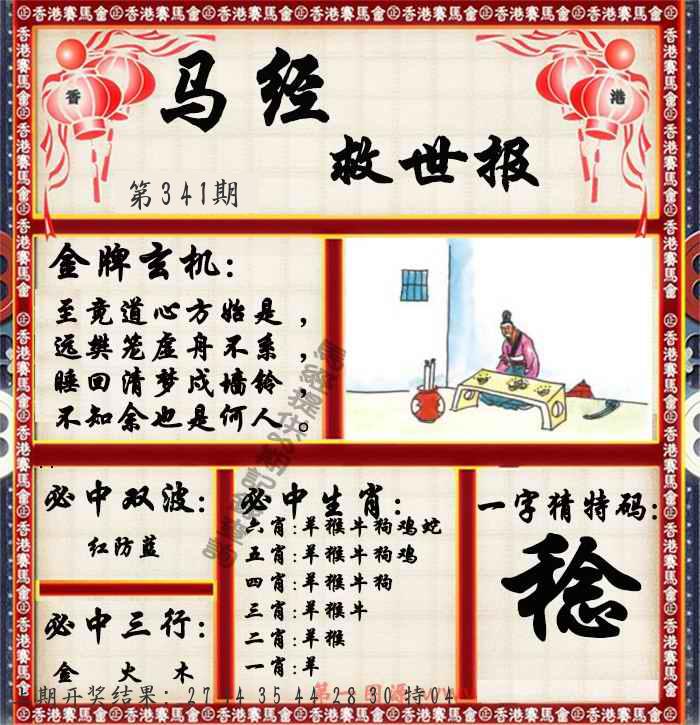 香港賽馬會
香
港
马经
救世报
第341期
金牌玄机:
至竟道心方始是，
远樊笼虚舟不系，
睡回清梦戍墙铃，
不知余也是何人。
必中双波:
红防蓝
必中三行:
金 火 木
必中生肖:
六肖:羊猴牛狗鸡蛇
五肖:羊猴牛狗鸡
四肖:羊猴牛狗
三肖:羊猴牛
二肖:羊猴
一肖:羊
一字猜特码:
稔
期开奖结果: 27 44 35 44 28 30 特04